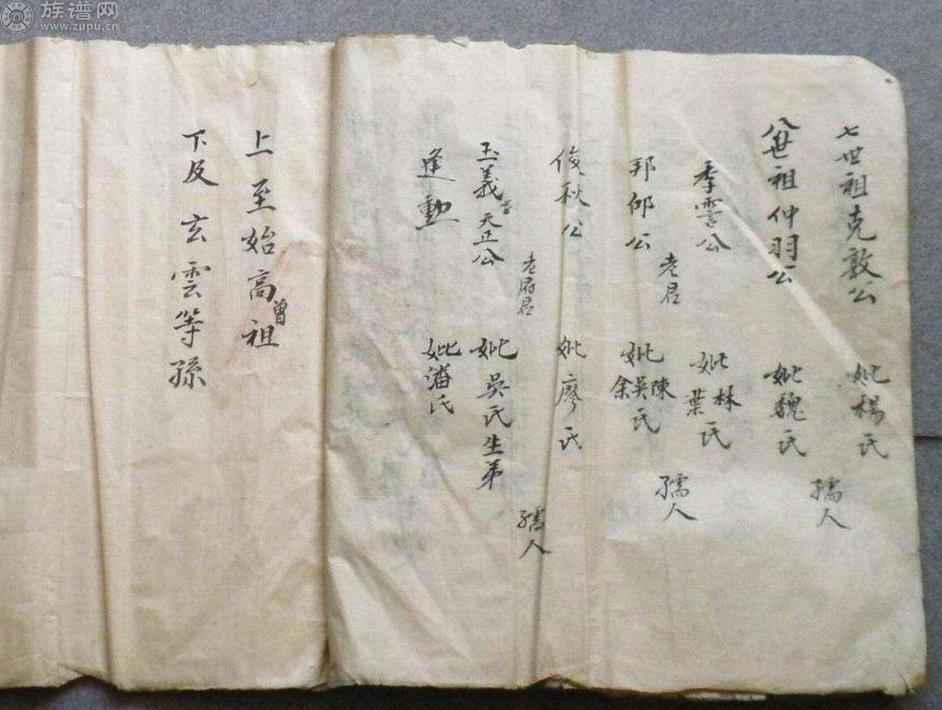 族谱网
www.zupu.cn
七世祖克敦公 妣楊氏
孺人
八世祖仲羽公 妣魏氏
季雲公 妣林葉氏
老君 孺人
邦郇公 妣陳吳余氏
俊秋公 妣廖氏
老府君 孺人
玉義 天正公 妣吳氏生弟
逢勳 妣潘氏
上至始高曾祖
下及玄雲等孫